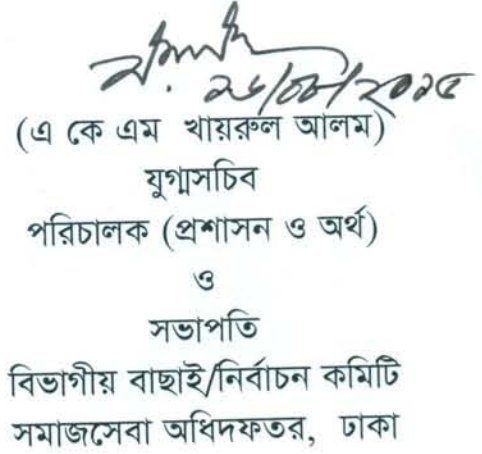 (এ কে এম খায়রুল আলম)
যুগ্মসচিব
পরিচালক (প্রশাসন ও অর্থ)
ও
সভাপতি
বিভাগীয় বাছাই/নির্বাচন কমিটি
সমাজসেবা অধিদফতর, ঢাকা